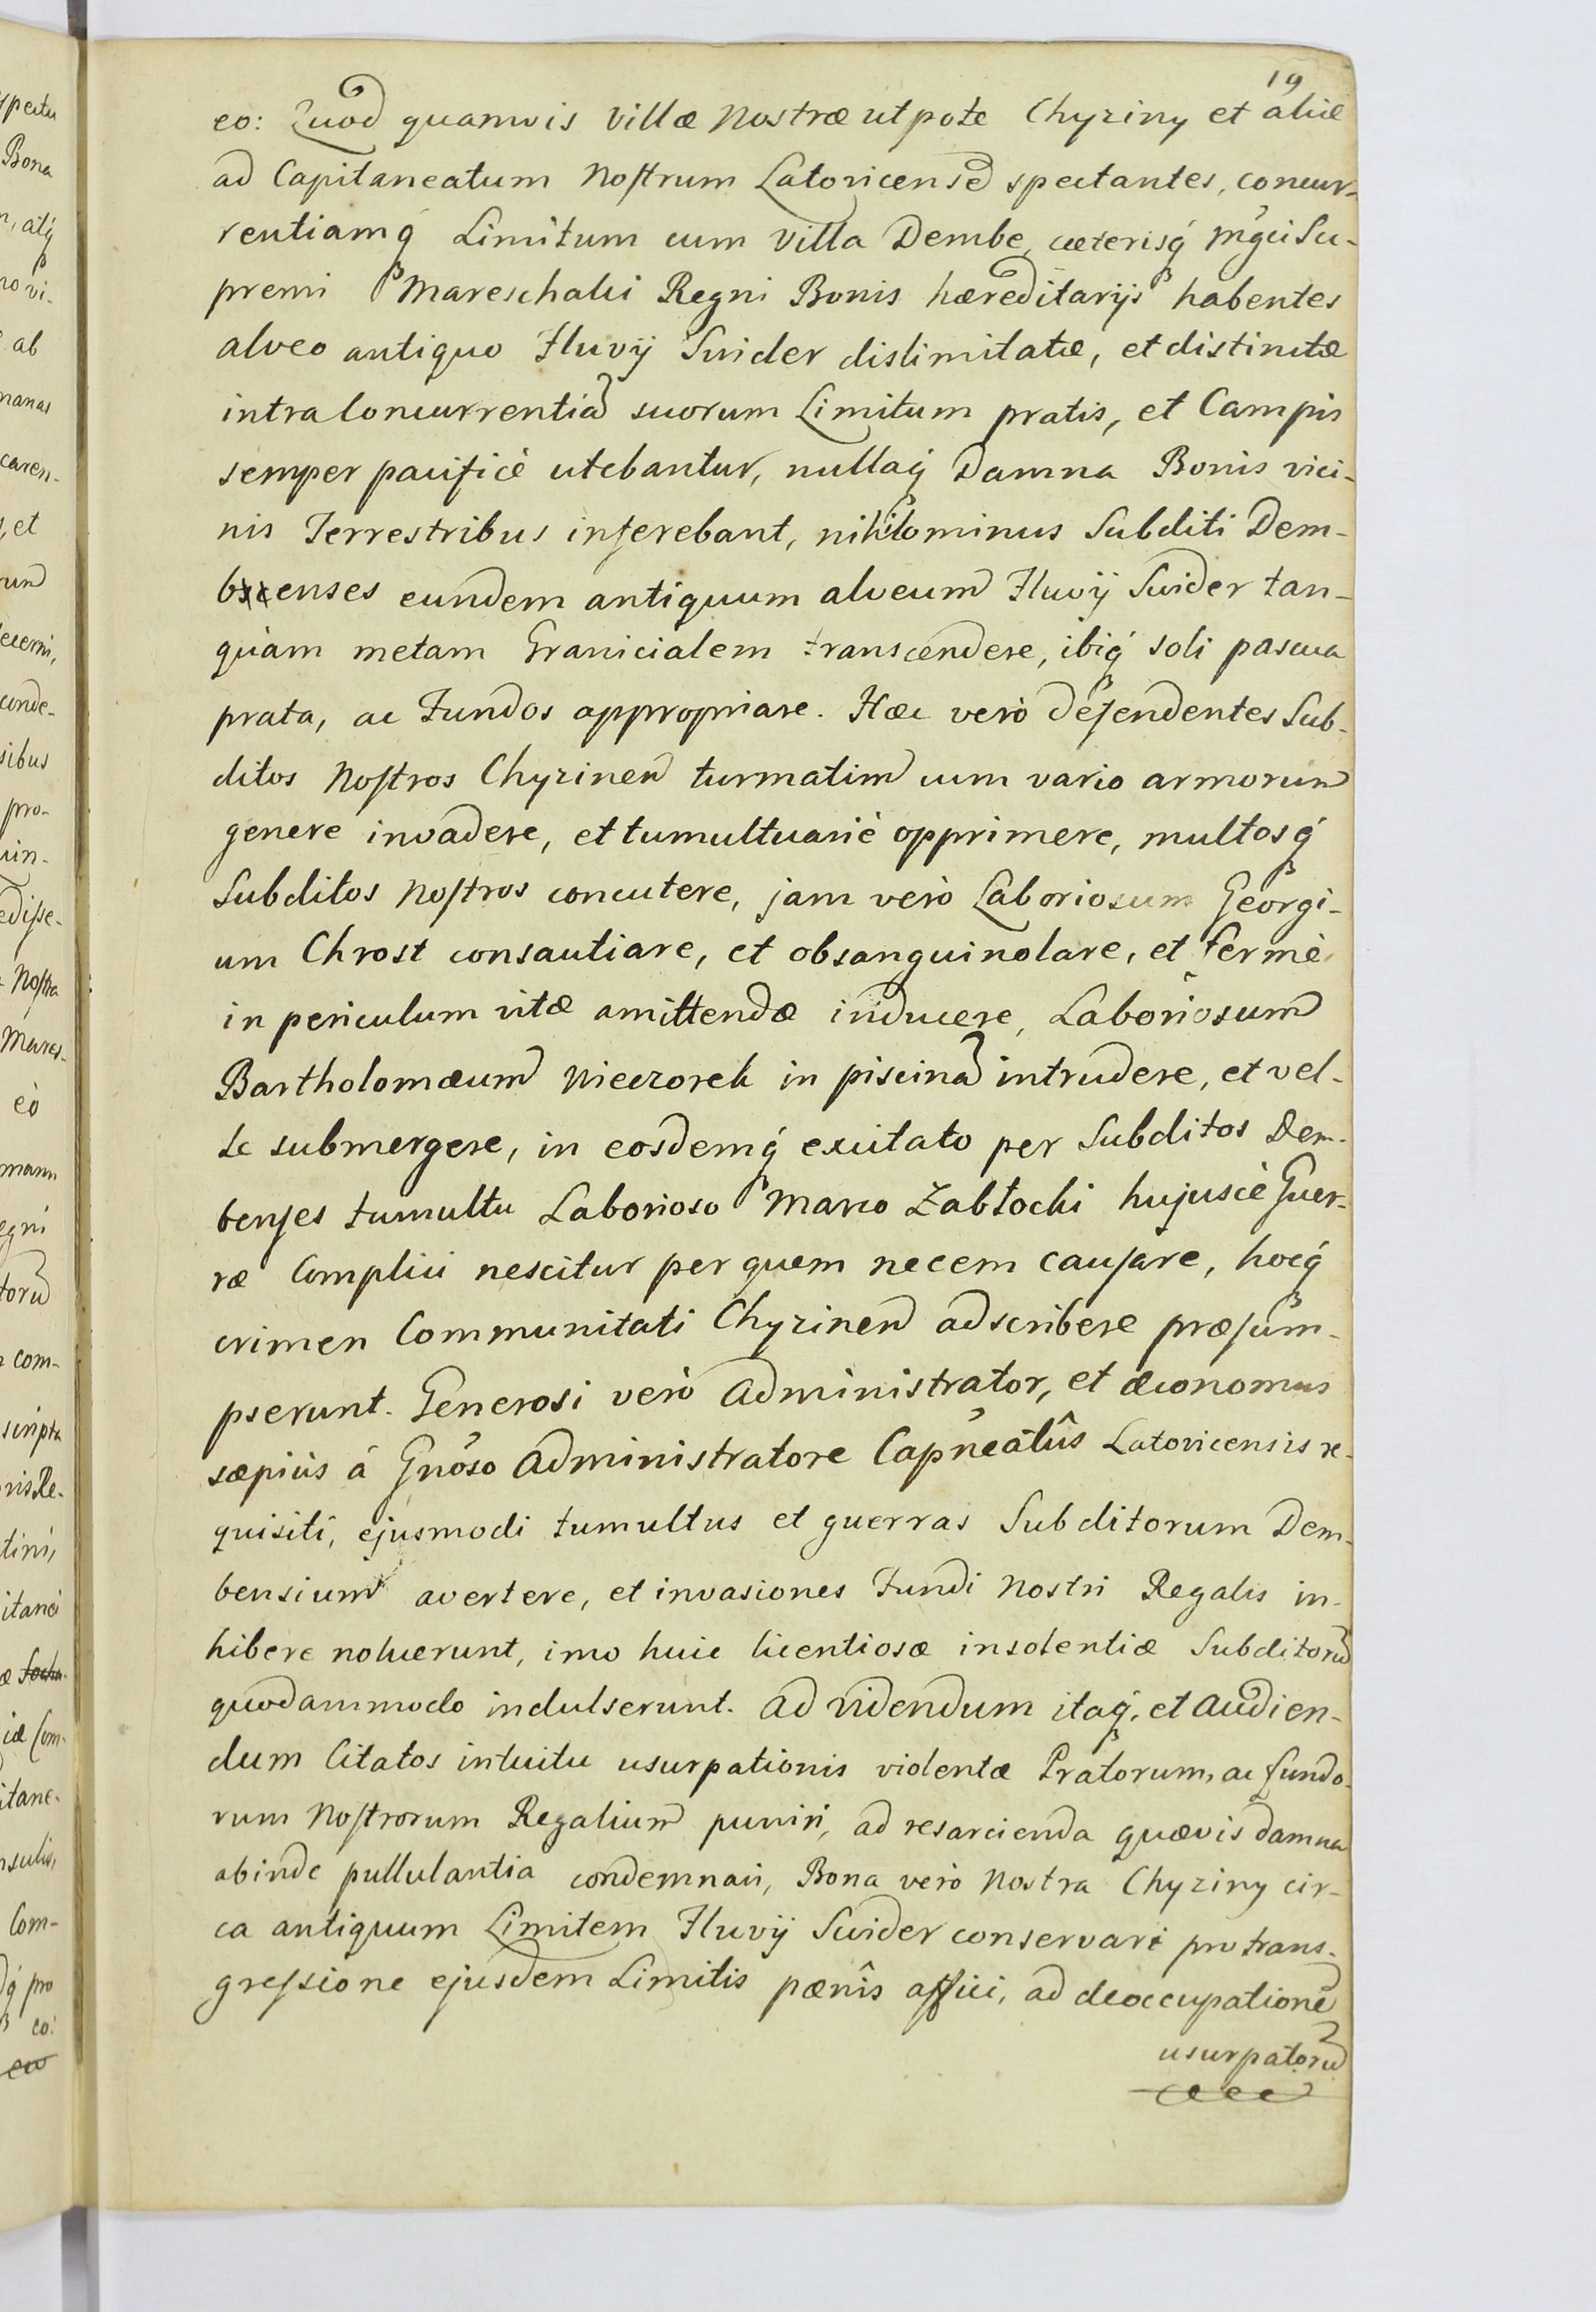 19
eo: Quod quamvis Villæ Nostræ utpote Chyziny et aliæ
ad Capitaneatum Nostrum Latovicense spectantes, concur-
rentiamq́ Limitum cum Villa Dembe, cæterisq́ Mgci Su-
premi Mareschalci Regni Bonis hæreditarijs habentes
alveo antiquo Fluvij Swider dislimitatæ, et distinctæ
intra Concurrentiam suorum Limitum pratis, et Campis
semper pacificè utebantur, nullaq́ Damna Bonis vici-
nis Terrestribus inferebant, nihilominus Subditi Dem-
benses eundem antiquum alveum Fluvij Swider tan-
quàm metam Granicialem transcendere, ibiq́ soli pascua
prata, ac Fundos appropriare. Hæc verò defendentes Sub-
ditos Nostros Chyzinen turmatim cum vario armorum
genere invadere, et tumultuariè opprimere, multosq́
Subditos Nostros concutere, jam verò Laboriosum Georgi-
um Chrost consautiare, et obsanguinolare, et fermè
in periculum vitæ amittendæ inducere, Laboriosum
Bartholomæum Wieczorek in piscinam intrudere, et vel-
le submergere, in eosdemq́ excitato per Subditos Dem-
benses tumultu Laborioso Marco Zabłocki hujuscè Guer-
ræ Complici nescitur per quem necem causare, hocq́
crimen Communitati Chyzinen adscribere præsum-
pserunt. Generosi verò Administrator, et œconomus
sæpiùs á Gnoso Administratore Capneatûs Latovicensis re-
quisiti, ejusmodi tumultus et guerras Subditorum Dem-
bensium avertere, et invasiones Fundi Nostri Regalis in-
hibere noluerunt, imo huic licentiosæ insolentiæ Subditorum
quodammodo indulserunt. Ad videndum itaq́, et Audien-
dum Citatos intuitu usurpationis violentæ Pratorum, ac fundo-
rum Nostrorum Regalium puniri, ad resarcienda quævis damna
abinde pullulantia condemnari, Bona verò Nostra Chyziny cir-
ca antiquum Limitem Fluvij Swider conservari pro trans-
gressione ejusdem Limitis pœnîs affici, ad deoccupationem
usurpatorum